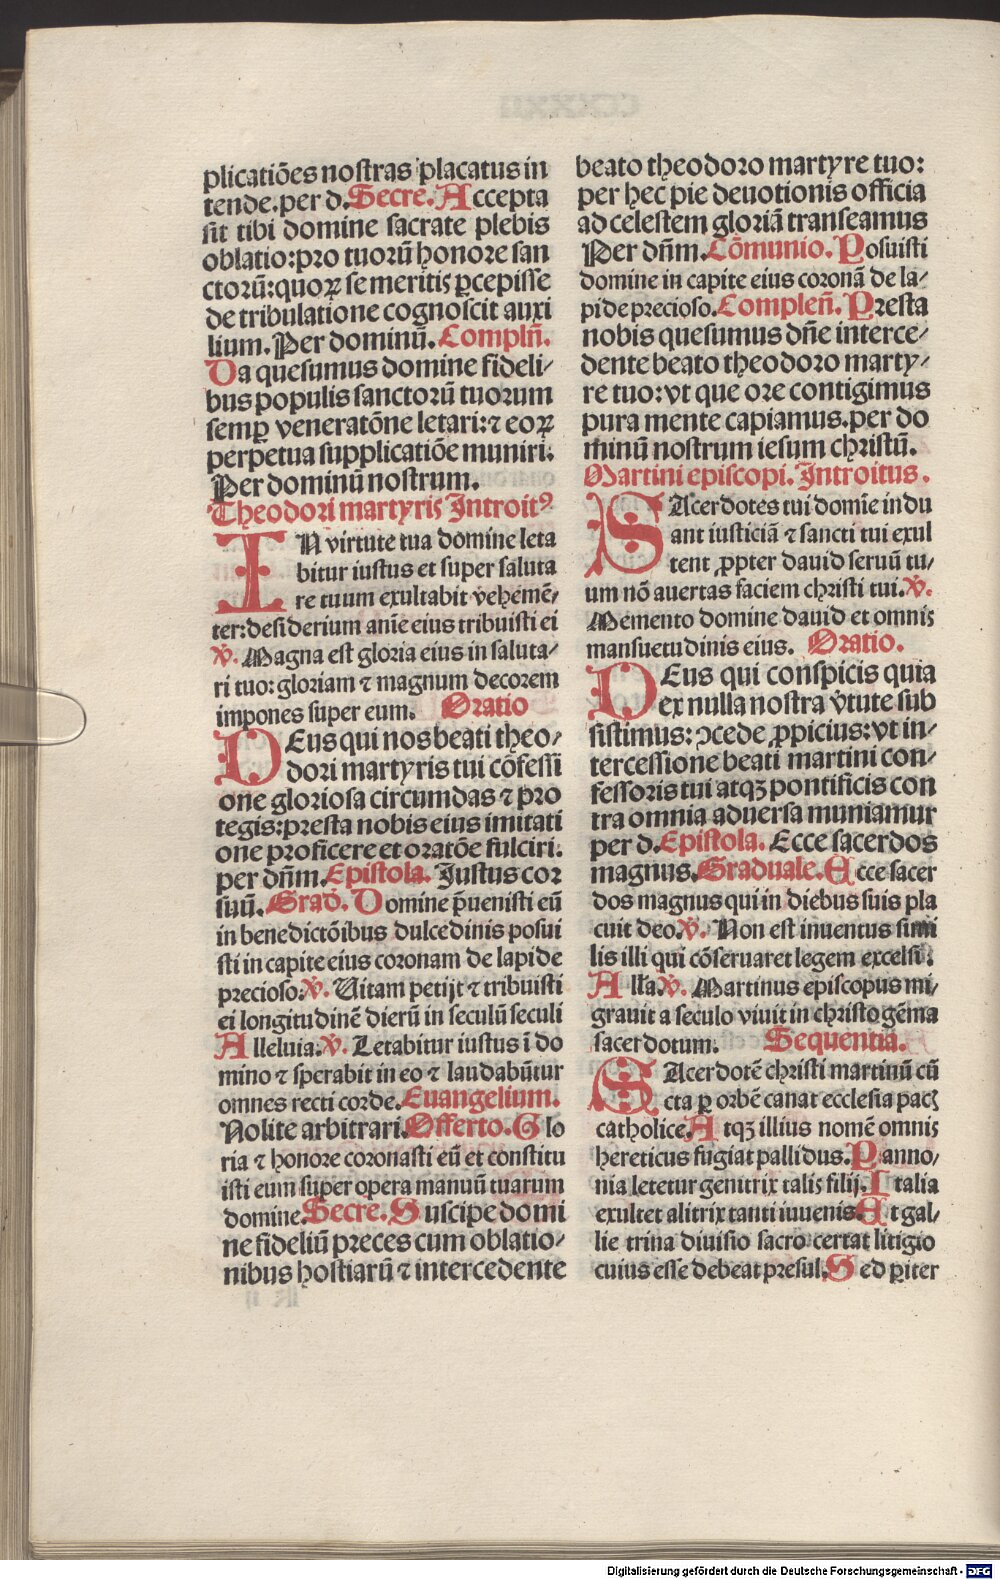 plicatiões nostras placatus in
tende. per d. Secre. Accepta
sit tibi domine sacrate plebis
oblatio: pro tuorū honore san
ctorū: quoꝝ se meritis ꝑcepisse
de tribulatione cognoscit auxi
lium. Per dominū. Complñ.
Da quesumus domine fideli-
bus populis sanctorū tuorum
semꝑ veneratōne letari: ⁊ eoꝝ
perpetua supplicatiōe muniri.
Per dominū nostrum.
Theodori martyris Introitꝰ
IN virtute tua domine leta
bitur iustus et super saluta
re tuum exultabit vehemē-
ter: desiderium anie eius tribuisti ei
℣. Magna est gloria eius in saluta-
ri tuo: gloriam ⁊ magnum decorem
impones super eum. Oratio
DEus qui nos beati theo-
dori martyris tui cōfessi
one gloriosa circumdas ⁊ pro
tegis: presta nobis eius imitati
one proficere et oratōe fulciri.
per dñm. Epistola. Justus cor
suū. Grad. Domine p̄uenisti eū
in benedictōibus dulcedinis posui
sti in capite eius coronam de lapide
precioso. ℣. Vitam petijt ⁊ tribuisti
ei longitudinē dierū in seculū seculi
Alleluia. ℣. Letabitur iustus ī do
mino ⁊ sperabit in eo ⁊ laudabūtur
omnes recti corde. Euangelium.
Nolite arbitrari. Offerto. Glo
ria ⁊ honore coronasti eū et constitu
isti eum super opera manuū tuarum
domine. Secre. Suscipe domi
ne fideliū preces cum oblatio-
nibus hostiarū ⁊ intercedente
beato theodoro martyre tuo:
per hec pie deuotionis officia
ad celestem gloriā transeamus
Per dñm. Cōmunio. Posuisti
domine in capite eius coronā de la-
pide precioso. Compleñ. Presta
nobis quesumus dñe interce-
dente beato theodoro marty-
re tuo: vt que ore contigimus
pura mente capiamus. per do
minū nostrum iesum christū.
Martini episcopi. Introitus.
SAcerdotes tui domīe indu
ant iusticiā ⁊ sancti tui exul
tent ꝓpter dauid seruū tu-
um nō auertas faciem christi tui. ℣.
Memento domine dauid et omnis
mansuetudinis eius. Oratio.
DEus qui conspicis quia
ex nulla nostra v̓tute sub
sistimus: ↄcede ꝓpicius: vt in-
tercessione beati martini con-
fessoris tui atqꝫ pontificis con
tra omnia aduersa muniamur
per d. Epistola. Ecce sacerdos
magnus. Graduale. Ecce sacer
dos magnus qui in diebus suis pla
cuit deo. ℣. Non est inuentus simi
lis illi qui cōseruaret legem excelsi.
Alla. ℣. Martinus episcopus mi-
grauit a seculo viuit in christo gēma
sacerdotum. Sequentia.
SAcerdotē christi martinū cū
cta ꝑ orbē canat ecclesia pacꝭ
catholice. Atqꝫ illius nomē omnis
hereticus fugiat pallidus. Panno-
nia letetur genitrix talis filij. Italia
exultet alitrix tanti iuuenis. Et gal-
lie trina diuisio sacro certat litigio
cuius esse debeat presul. Sed ꝑiter
Digitalisierung gefördert durch die Deutsche Forschungsgemeinschaft - DFG